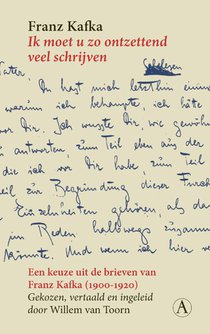 Franz Kafka
Ik moet u zo ontzettend
veel schrijven
Schelesen
Vater,
Du hast mich letzthin einmal
warum ich behaupte, ich hätte
vor Dir. Ich wusste Dir, wie gewöhn
zu antworten, zum Teil eben aus der
die ich vor Dir habe, zum Teil
zur Begründung dieser
Einzelheiten gehören, als da
im Reden halbwegs zusamm
könnte. Und wenn ich hier ver
Een keuze uit de brieven van
Franz Kafka (1900-1920)
Gekozen, vertaald en ingeleid
door Willem van Toorn
A